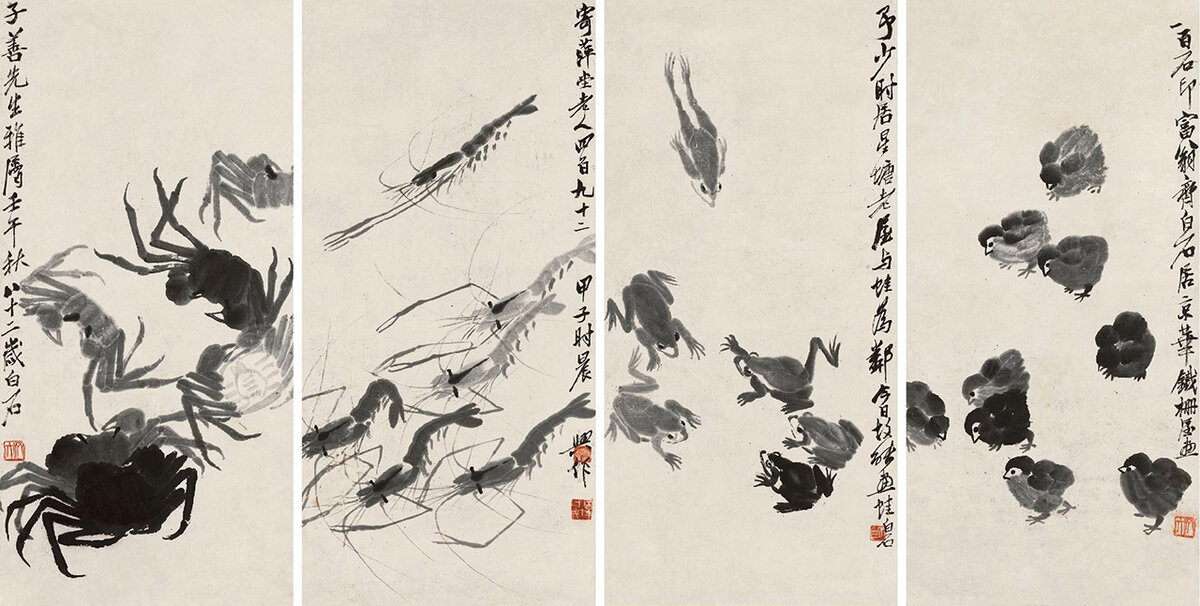 子善先生雅屬壬午秋八十二歲白石
寄萍堂老人四百九十二甲子时晨
興作
予少时居星塘老屋与蛙為鄰今日故能画蛙白石
一百石印富翁齊白石居京華鐵柵屋画